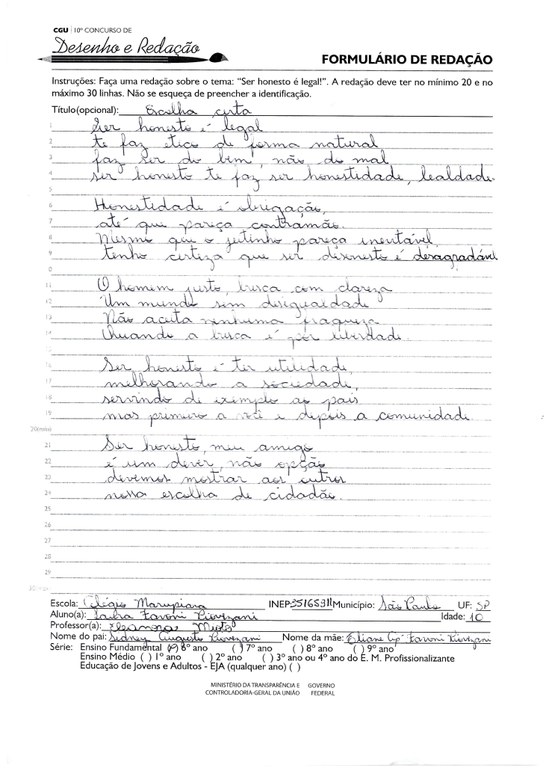 CGU | 10º CONCURSO DE
Desenho e Redação
FORMULÁRIO DE REDAÇÃO
Instruções: Faça uma redação sobre o tema: "Ser honesto é legal!". A redação deve ter no mínimo 20 e no
máximo 30 linhas. Não se esqueça de preencher a identificação.
Título(opcional): Escolha certa
1 Ser honesto é legal
2 te faz ético de forma natural
3 faz ser do bem, não do mal
4 ser honesto te faz ser honestidade, lealdade.
5
6 Honestidade é obrigação,
7 até que pareça contramão.
8 Mesmo que o jeitinho pareça inevitável,
9 tenho certeza que ser disonesto é desagradável
0
11 O homem justo, busca com clareza
12 Um mundo sem desigualdade
13 Não aceita nenhuma fraqueza
14 Quando a busca é por liberdade.
15
16 Ser honesto é ter utilidade,
17 melhorando a sociedade,
18 servindo de exemplo ao país
19 mas primeiro a você e depois a comunidade
20(mín)
21 Ser honesto, meu amigo
22 é um dever, não opção
23 devemos mostrar aos outros
24 nossa escolha de cidadão.
25
26
27
28
29
Escola: Colégio Marupiara INEP: Município: São Paulo UF: SP
Aluno(a): Favoni Pierezani Idade: 10
Professor(a): Eleonora
Nome do pai: Sidney Augusto Pierezani Nome da mãe: Eliane Ap. Favoni Pierezani
Série: Ensino Fundamental (x) 6º ano ( ) 7º ano ( ) 8º ano ( ) 9º ano
Ensino Médio ( ) 1º ano ( ) 2º ano ( ) 3º ano ou 4º ano do E. M. Profissionalizante
Educação de Jovens e Adultos - EJA (qualquer ano) ( )
MINISTÉRIO DA TRANSPARÊNCIA E GOVERNO
CONTROLADORIA-GERAL DA UNIÃO FEDERAL